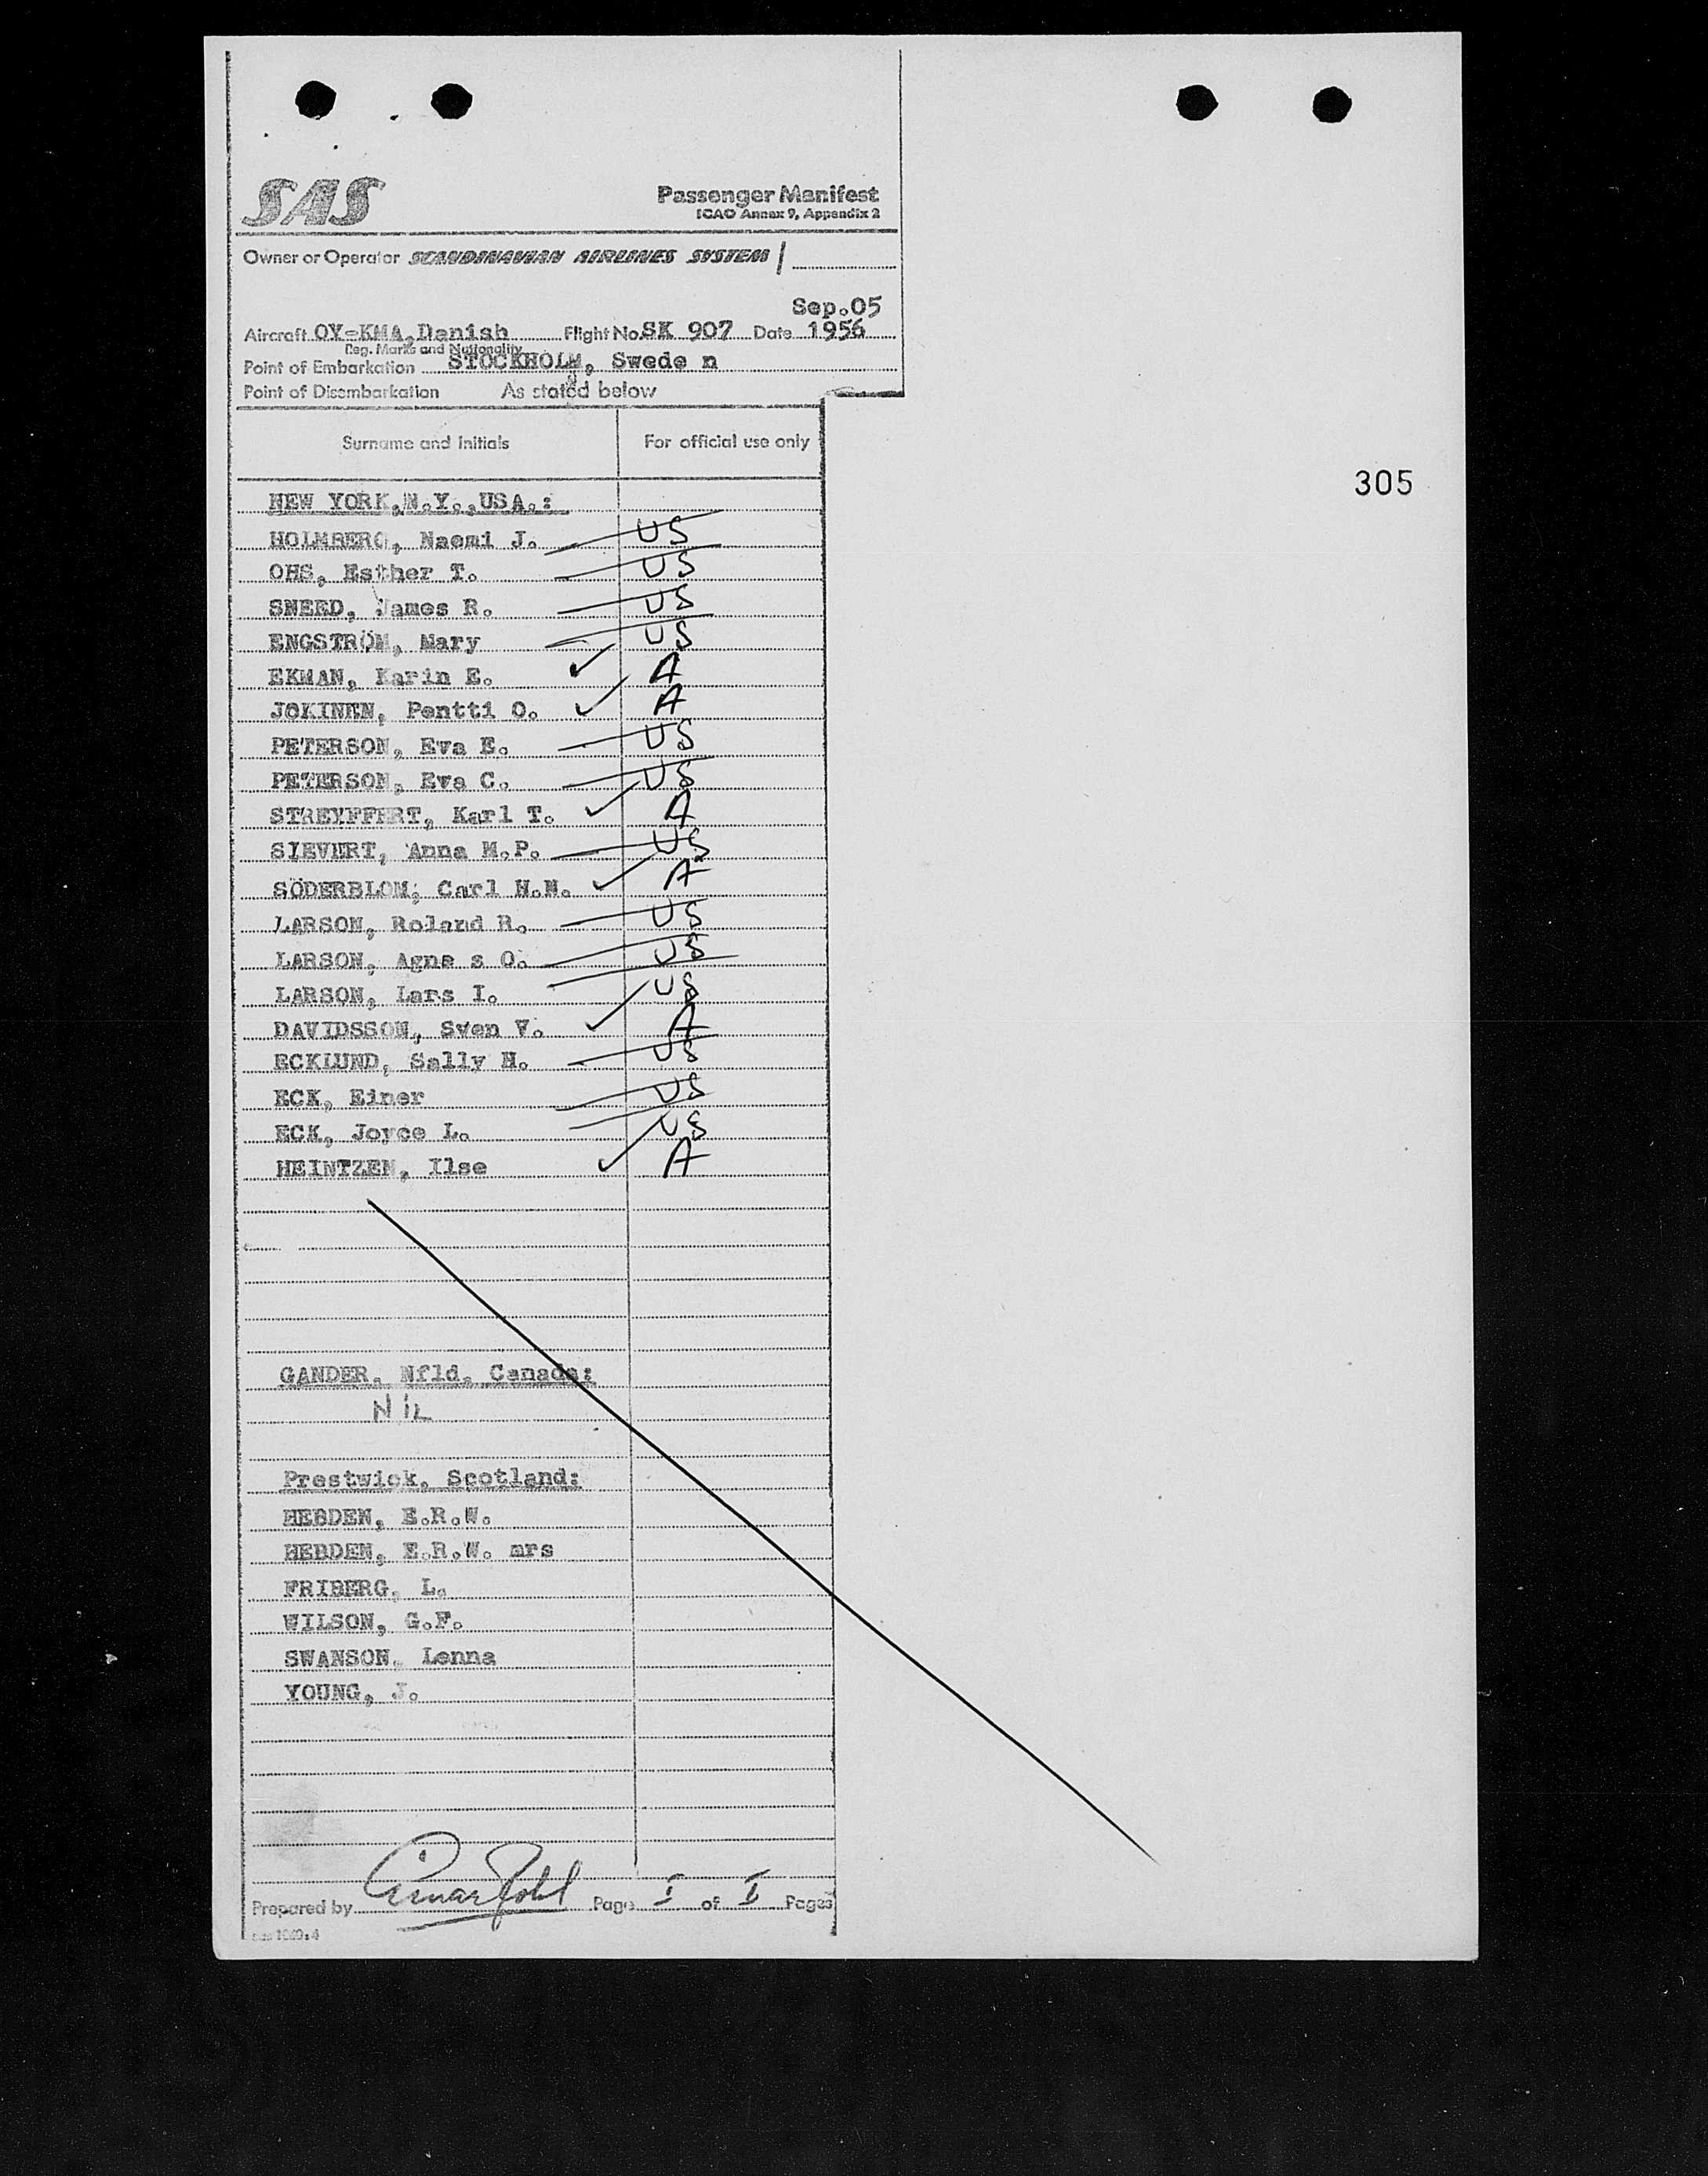 SAS
Passenger Manifest
ICAO Annex 9, Appendix 2
Owner or Operator SCANDINAVIAN AIRLINES SYSTEM /
Sep.05
Aircraft OY-KMA, Danish Flight No. SK 907 Date 1956
Reg. Marks and Nationality
Point of Embarkation STOCKHOLM, Swede n
Point of Disembarkation As stated below
Surname and Initials For official use only
305
NEW YORK,N.Y.,USA.:
HOLMBERG, Naemi J. US
OHS, Esther T. US
SNEED, James R. US
ENGSTRÖM, Mary US
EKMAN, Karin E. ✓ A
JOKINEN, Pentti O. ✓ A
PETERSON, Eva E. US
PETERSON, Eva C. US
STREYFFERT, Karl T. ✓ A
SIEVERT, Anna M.P. US
SÖDERBLOM, Carl H.N. ✓ A
LARSON, Roland R. US
LARSON, Agne s O. US
LARSON, Lars I. US
DAVIDSSON, Sven V. ✓ A
ECKLUND, Sally H. US
ECK, Einer US
ECK, Joyce L. US
HEINTZEN, Ilse ✓ A
GANDER, Nfld, Canada:
NIL
Prestwick, Scotland:
HEBDEN, E.R.W.
HEBDEN, E.R.W. mrs
FRIBERG, L.
WILSON, G.F.
SWANSON, Lenna
YOUNG, J.
Prepared by Page I of I Pages